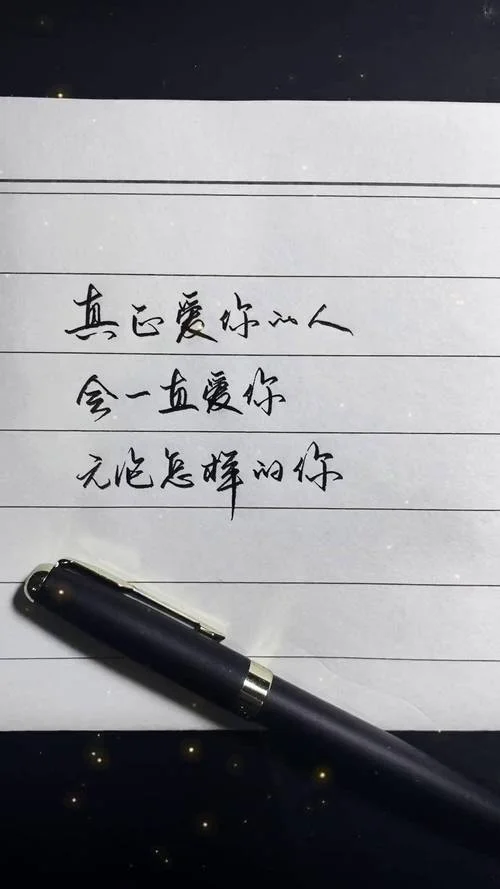 真正爱你的人
会一直爱你
无论怎样的你